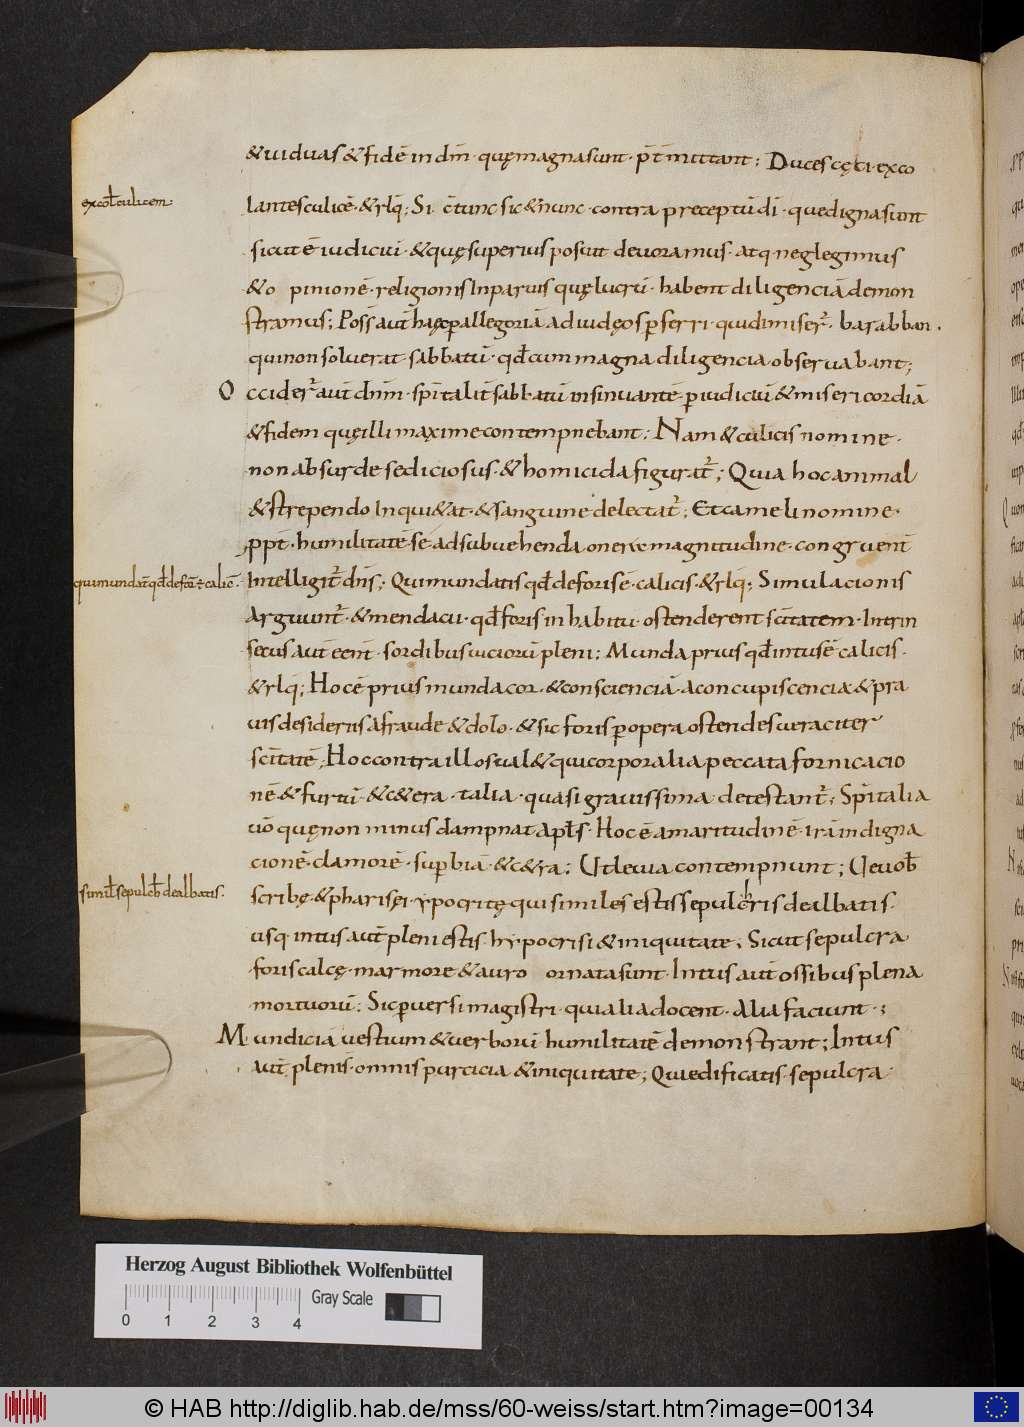 & uiduas & fidē in dm̄ · quę magna sunt · p̄t mittant ; Duces cęci · exco
excoł culicem ·
lantes culicē · & rłq̄ ; Si c̄ tunc sic & nunc · contra preceptū dī · que digna sunt
sicut ē iudiciū · & quę superius posuit deuoramus · atq· neglegimus
& o pinionē · religionis In paruis quę lucrū · habent diligenciā demon
stramus ; Poss̄ aut̄ hęc ꝑ allegoriā ad iudęos ꝑferri · qui dimiser̄ · barabban ·
qui non soluerat sabbatū · qd̄ cum magna diligencia obseruabant ;
Occider̄ aut̄ dn̄m · sp̄italit̄ sabbatū insinuantē · ꝑ iudiciū & misericordiā
& fidem quę illi maxime contempnebant ; Nam & culicis nomine ·
non absurde sediciosus · & homicida figurat̄ ; Quia hoc animal
& strependo Inqui&at · & sanguine delectat̄ ; Et cameli nomine ·
ꝓpt̄ · humilitatē se ad subuehenda onerū magnitudine · congruent̄
qui mundat̄ qd̄ defoꝛ̄ ē calic̄ ·
Intelligit̄ dn̄s ; Qui mundatis qd̄ deforis ē · calicis · & rłq̄ ; Simulacionis
Arguunt̄ · & mendacii · qd̄ foris in habitu · ostenderent sc̄itatem · Intrin
secus aut̄ eēnt · sordibus uiciorū pleni ; Munda prius qd̄ intus ē calicis ·
& rłq̄ ; Hoc ē prius munda cor · & consciencia · a concupiscencia & pra
uis desideriis a fraude & dolo · & sic foris ꝑ opera ostendes ueraciter
sc̄itatē ; Hoc contra illos ual& qui corporalia peccata fornicacio
nē · & furtū · & c&era · talia · quasi grauissima detestant̄ ; Sp̄italia
uō quę non minus dampnat apłs · Hoc ē amaritudinē · irā indigna
cionē · clamorē · suꝑbiā · & c&ra ; Ut leuia contempnunt ; Ue uob̄
simił sepulcħ dealbatis ·
scribę · & pharisęi ypocritę qui similes estis sepulchris dealbatis ·
usq· intus aut̄ pleni estis · hypocrisi & iniquitate ; Sicut sepulcra
foris calcę · marmore & auro ornata sunt · Intus aut̄ ossibus plena
mortuorū ; Sic ꝑuersi magistri · qui alia docent · alia faciunt · ;
Mundiciā uestium & uerborū humilitatē demonstrant ; Intus
aut̄ plenis · omnis purcicia & iniquitate ; Qui edificatis · sepulcra ·
Herzog August Bibliothek Wolfenbüttel
Gray Scale
0 1 2 3 4
© HAB http://diglib.hab.de/mss/60-weiss/start.htm?image=00134